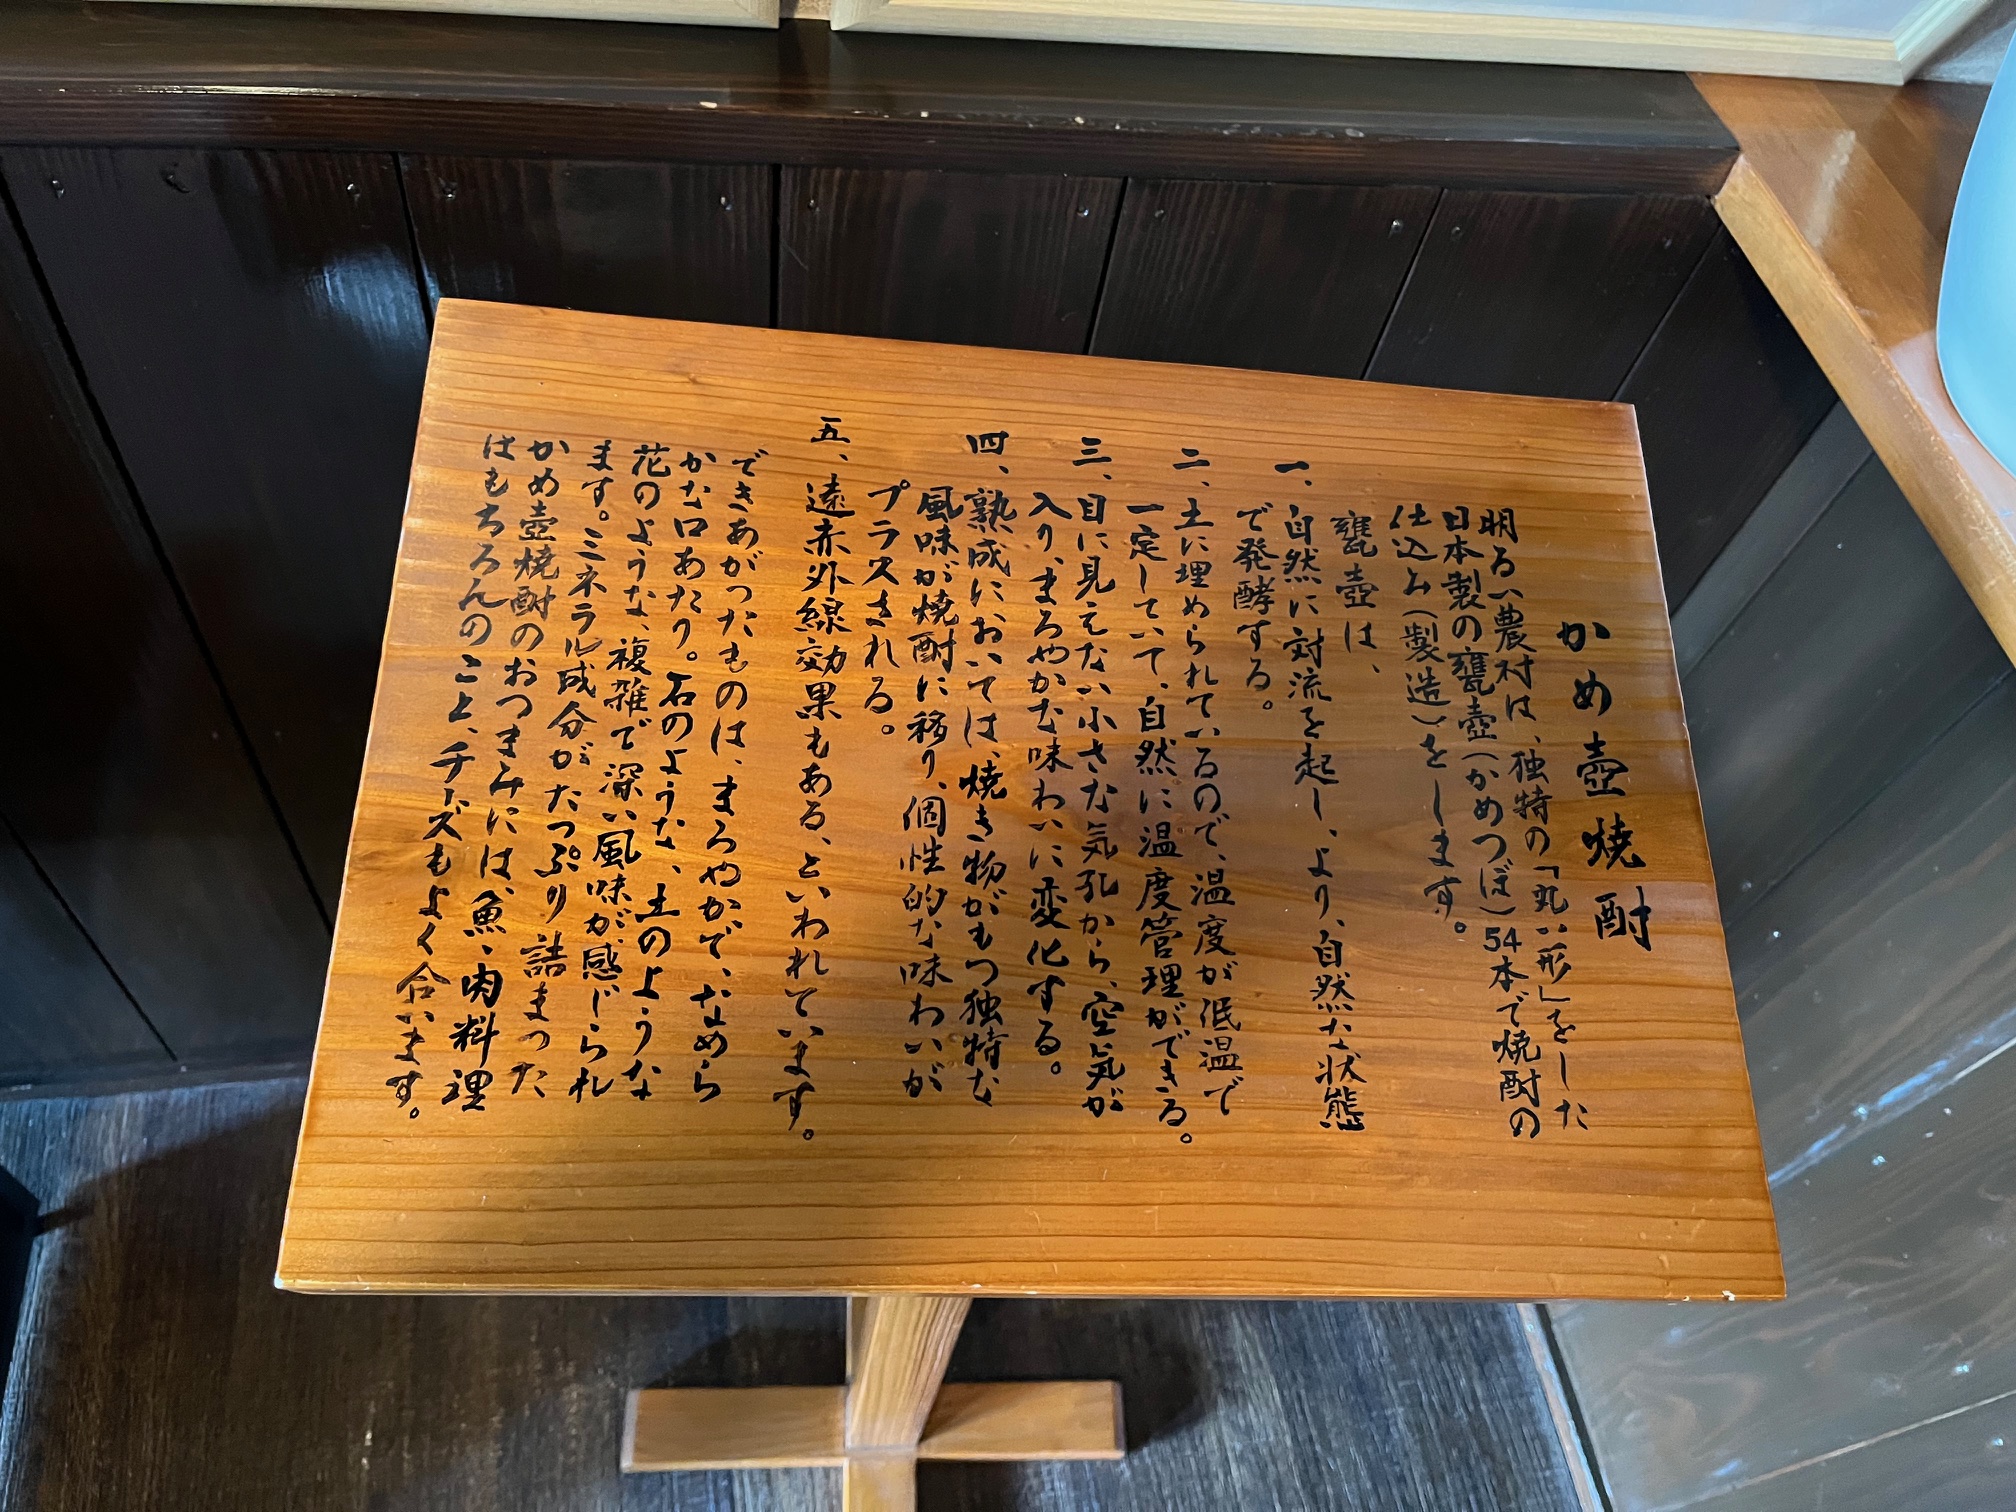 かめ壺焼酎
明るい農村は、独特の「丸い形」をした
日本製の甕壺(かめつぼ)54本で焼酎の
仕込み(製造)をします。
甕壺は、
一、自然に対流を起し、より、自然な状態
で発酵する。
二、土に埋められているので、温度が低温で
一定していて、自然に温度管理ができる。
三、目に見えない小さな気孔から、空気が
入り、まろやかな味わいに変化する。
四、熟成においては、焼き物がもつ独特な
風味が焼酎に移り、個性的な味わいが
プラスされる。
五、遠赤外線効果もある、といわれています。
できあがったものは、まろやかで、なめら
かな口あたり。石のような、土のような
花のような、複雑で深い風味が感じられ
ます。ミネラル成分がたっぷり詰まった
かめ壺焼酎のおつまみには、魚、肉料理
はもちろんのこと、チーズもよく合います。